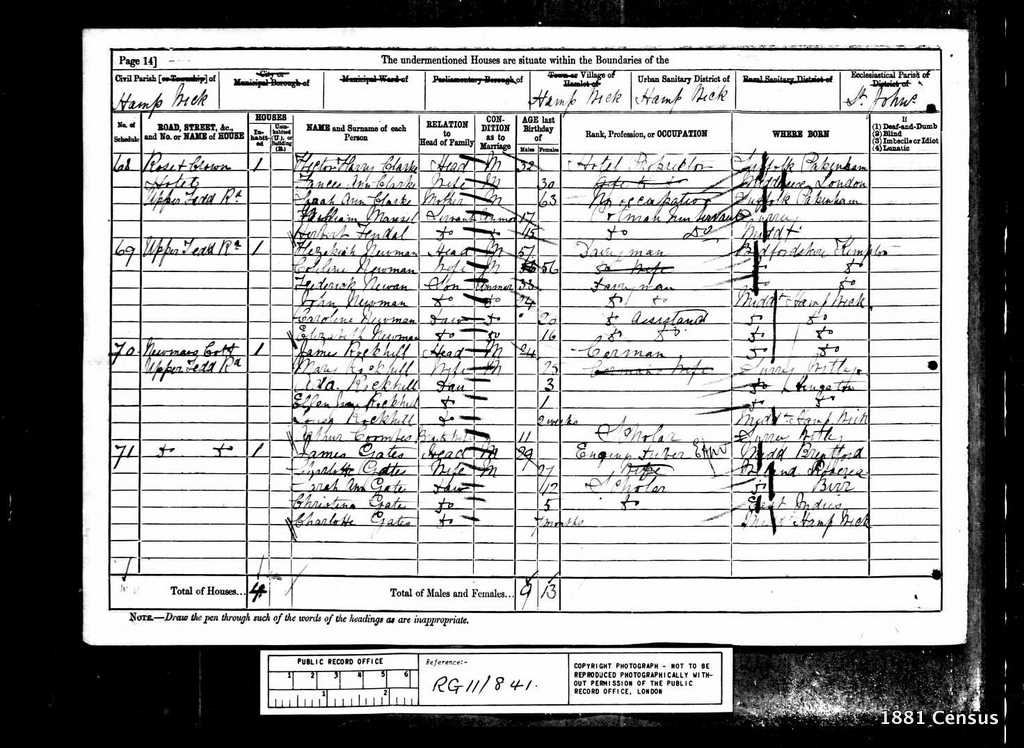 Page 14]
The undermentioned Houses are situate within the Boundaries of the
Civil Parish [or Township] of
City or Municipal Borough of
Municipal Ward of
Parliamentary Borough of
Town or Village of Hamlet of
Urban Sanitary District of
Rural Sanitary District of
Ecclesiastical Parish of District of
Hamp Wick Hamp Wick Hamp Wick St. Johns
No. of Schedule
ROAD, STREET, &c., and No. or NAME of HOUSE
HOUSES
Inhabited
Uninhabited (U.), or Building (B.)
NAME and Surname of each Person
RELATION to Head of Family
CONDITION as to Marriage
AGE last Birthday of
Males Females
Rank, Profession, or OCCUPATION
WHERE BORN
If
(1) Deaf-and-Dumb
(2) Blind
(3) Imbecile or Idiot
(4) Lunatic
68 Rose & Crown 1 Hector Harry Clarke Head M 32 Hotel Suffolk Pakenham
Hotel Frances Ann Clarke Wife M 30 Middlesex London
Upper Tedd Rd Sarah Ann Clarke Mother M 63 No occupation Suffolk Pakenham
William Servant 17 Surrey
do do 15 Do Middx
69 Upper Tedd Rd 1 Hezekiah Newman Head M 57 Dairyman Bedfordshire Kempston
Newman Wife M 56 do Wife do do
Frederick Son 33 Dairyman do do
John Newman do do 24 do do Middx Hamp Wick
Caroline Newman Daur do 20 do Assistant do do
Elizabeth Newman do do 16 do do do do
70 Newmans Cott 1 James Rockhill Head M 24 Carman do do
Upper Tedd Rd Mary Rockhill Wife M 23 Carmans Wife Surrey
Ada Rockhill Dau 3 do Kingston
Ellen Jane Rockhill do 1 do do
Rockhill do 2 weeks Middx Hamp Wick
Arthur Coombes 11 Scholar Surrey
71 do do 1 James Gates Head M 29 Engine Midd Brentford
Charlotte Gates Wife M 27 Wife
Sarah Ann Gates Daur 12 Scholar do Birr
Christina Gates do 5 do East Indies
Charlotte Gates do 7 months Midx Hamp Wick
Total of Houses... 4
Total of Males and Females... 9 13
NOTE.—Draw the pen through such of the words of the headings as are inappropriate.
PUBLIC RECORD OFFICE
1 2 3 4 5 6
1 2
Reference:-
RG 11/841.
COPYRIGHT PHOTOGRAPH - NOT TO BE
REPRODUCED PHOTOGRAPHICALLY WITH-
OUT PERMISSION OF THE PUBLIC
RECORD OFFICE, LONDON
1881 Census